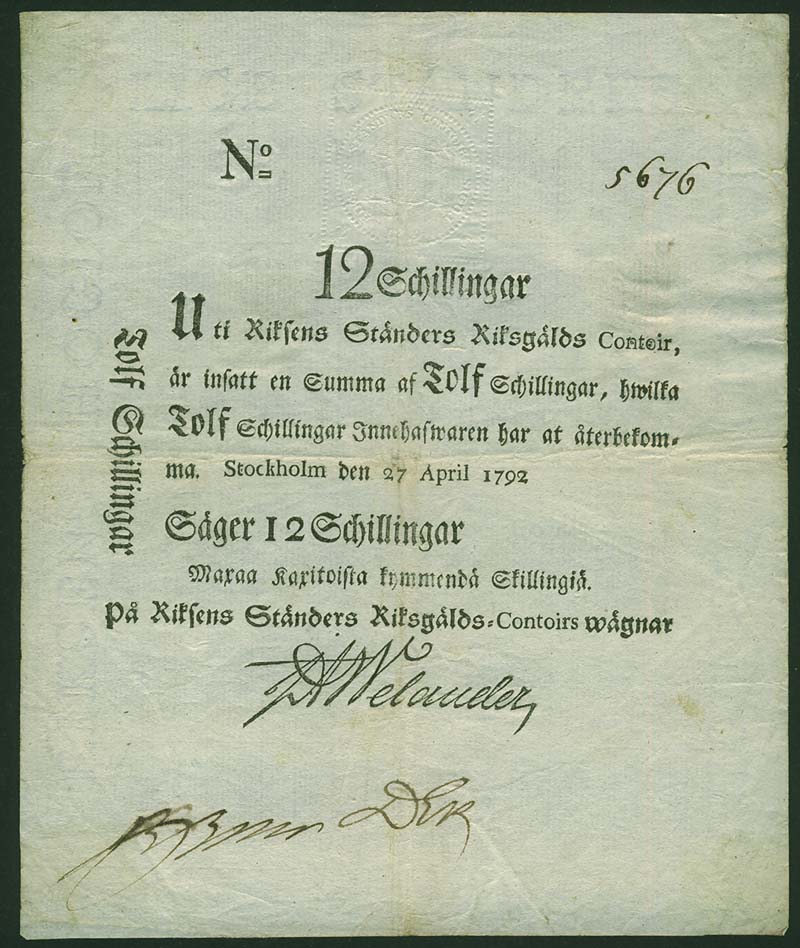 No
5676
12 Schillingar
Uti Riksens Ständers Riksgälds Contoir,
är insatt en Summa af Tolf Schillingar, hwilka
Tolf Schillingar Innehafwaren har at återbekom-
ma. Stockholm den 27 April 1792
Säger 12 Schillingar
Maxaa Kaxitoista kymmendä Skillingiä.
På Riksens Ständers Riksgälds-Contoirs wägnar
Tolf Schillingar
Welander